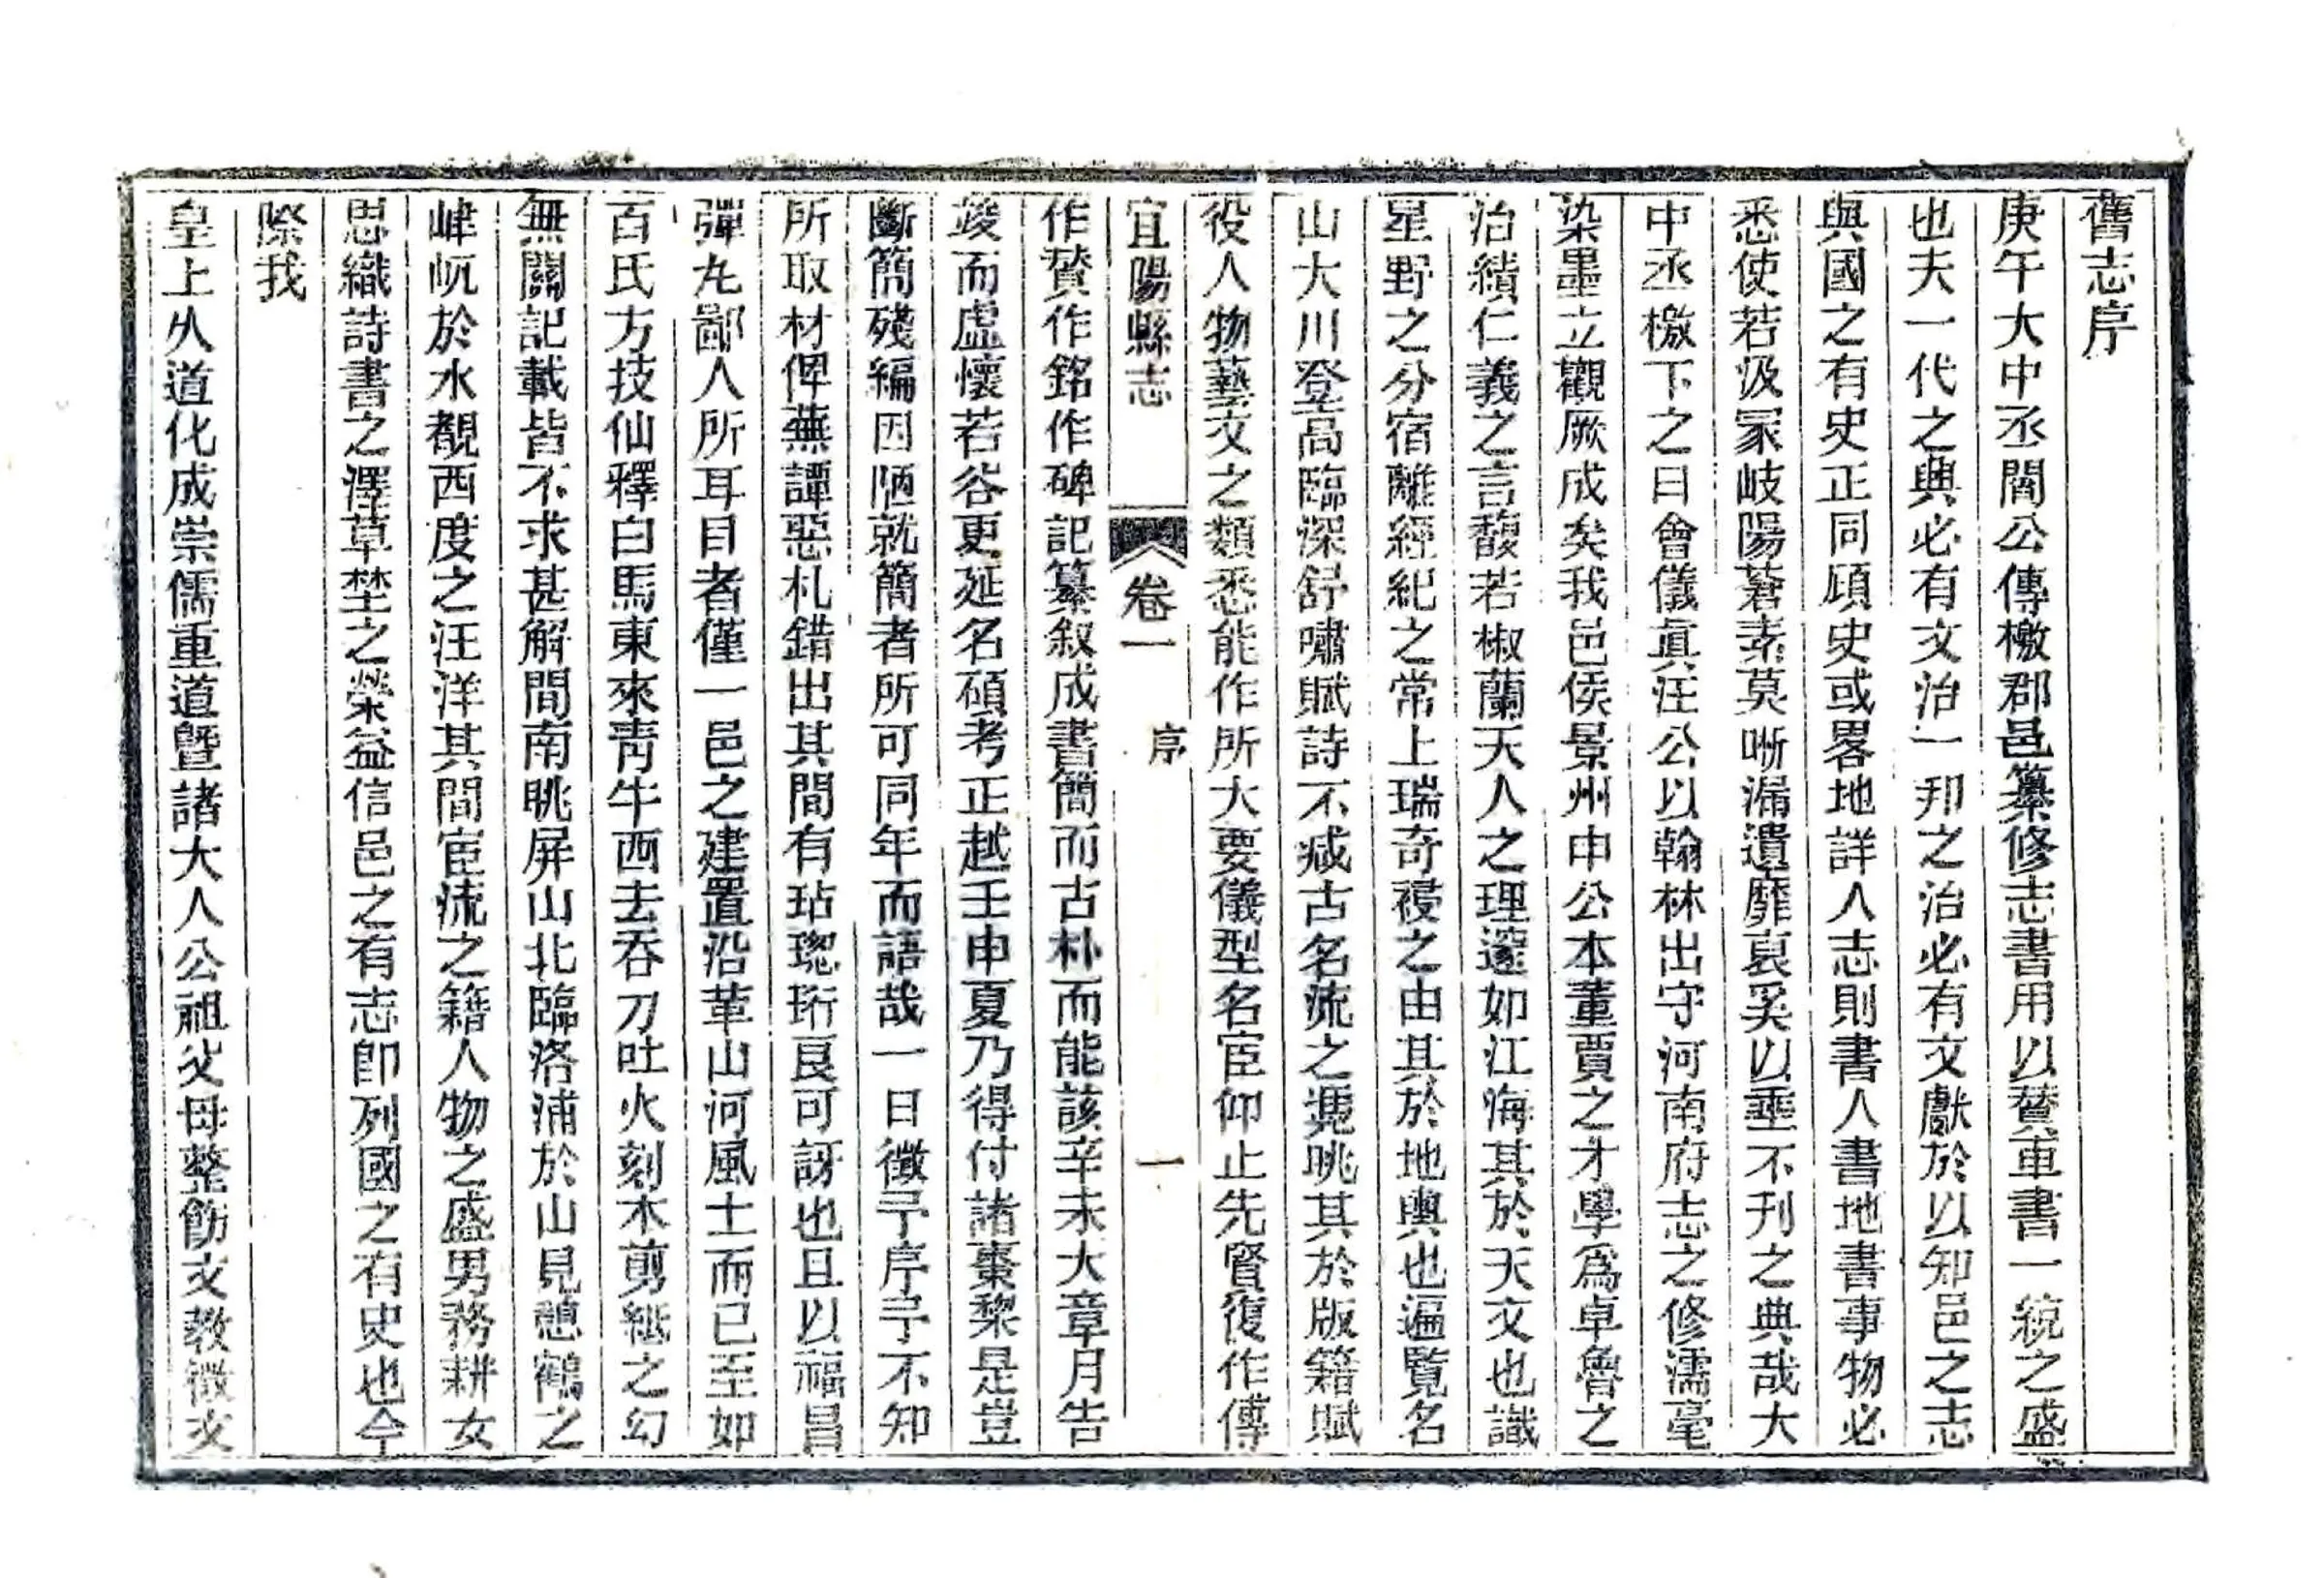 舊志序
庚午大中丞閻公傳檄郡邑纂修志書用以贊車書一統之盛
也夫一代之興必有文治一邦之治必有文獻於以知邑之志
與國之有史正同頋史或畧地詳人志則書人書地書事物必
悉使若汲冢岐陽蒼素莫晰漏遺靡裒奚以垂不刊之典哉大
中丞檄下之日會儀眞汪公以翰林出守河南府志之修濡毫
染墨立觀厥成矣我邑侯景州申公本董賈之才學爲卓魯之
治績仁義之言馥若椒蘭天人之理邃如江海其於天文也識
星野之分宿離經紀之常上瑞奇祲之由其於地輿也遍覽名
山大川登高臨深舒嘯賦詩不減古名流之凴眺其於版籍賦
役人物藝文之類悉能作所大要儀型名宦仰止先賢復作傳
宜陽縣志 卷一 序 一
作贊作銘作碑記纂叙成書簡而古朴而能該辛未大章月告
竣而虛懷若谷更延名碩考正越壬申夏乃得付諸棗棃是豈
斷簡殘編因陋就簡者所可同年而語哉一日徵予序予不知
所取材俾蕪譚惡札錯出其間有玷琨珩良可訝也且以福昌
彈丸鄙人所耳目者僅一邑之建置沿革山河風土而已至如
百氏方技仙釋白馬東來靑牛西去吞刀吐火刻木剪紙之幻
無關記載皆不求甚解間南眺屏山北臨洛浦於山見憩鶴之
峍屼於水覩西度之汪洋其間宦流之籍人物之盛男務耕女
思織詩書之澤草埜之榮益信邑之有志卽列國之有史也今
際我
皇上久道化成崇儒重道曁諸大人公祖父母整飭文敎徵文